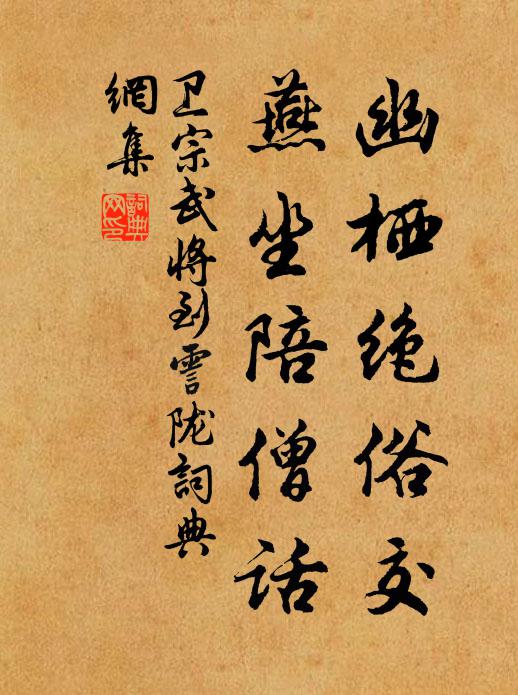 幽栖绝俗交
燕坐陪僧话
卫宗武将到霅陇詞典
網集
詞典
网印